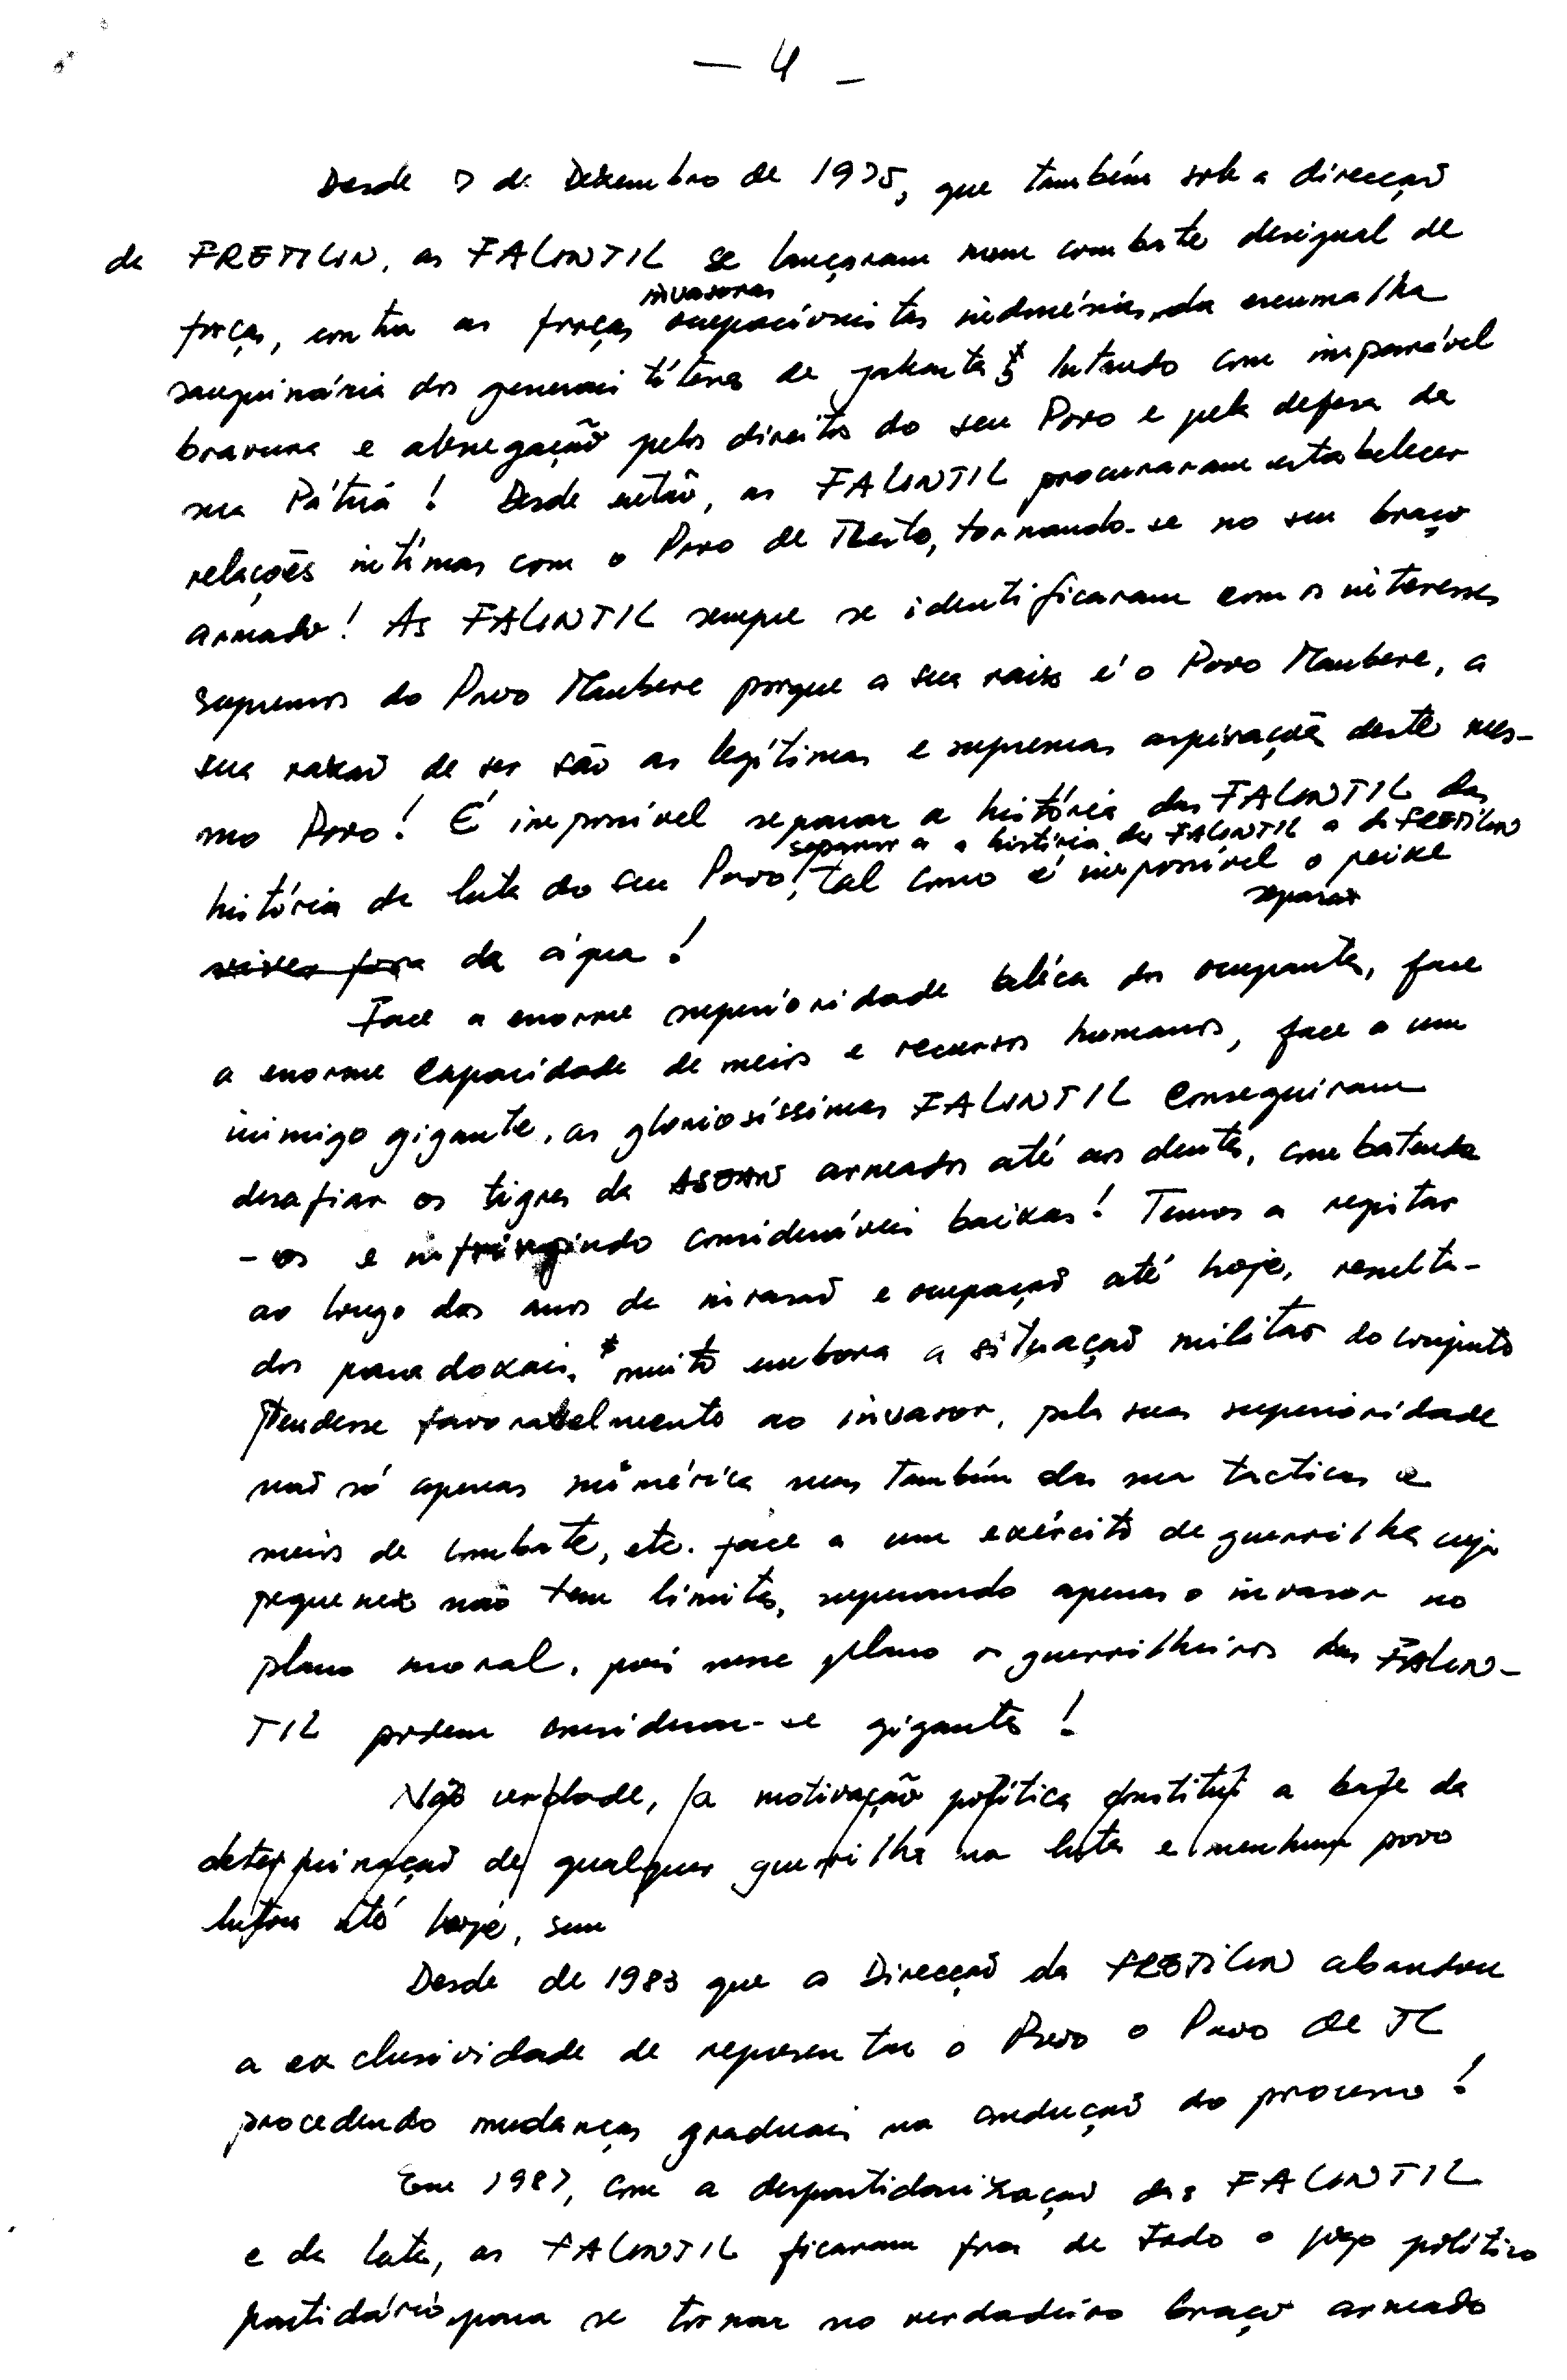 — 4 —
Desde 7 de Dezembro de 1975, que também sob a direcção
da FRETILIN, as FALINTIL se lançaram num combate desigual de
invasoras
forças, contra as forças ocupacionistas indonésias, da escumalha
sanguinária dos generais títeres de Jakarta lutando com imparável
bravura e abnegação pelos direitos do seu Povo e pela defesa da
sua Pátria! Desde então, as FALINTIL procuraram estabelecer
relações íntimas com o Povo de Timor, tornando-se no seu braço
armado! As FALINTIL sempre se identificaram com os interesses
supremos do Povo Maubere porque a sua raiz é o Povo Maubere, a
sua razão de ser são as legítimas e supremas aspirações deste mes-
mo Povo! É impossível separar a história das FALINTIL da
separar a a história das FALINTIL a da FRETILIN
história da luta do seu Povo, tal como é impossível o peixe
separar
viver fora da água!
Face a enorme superioridade bélica dos ocupantes, face
a enorme capacidade de meios e recursos humanos, face a um
inimigo gigante, as gloriosíssimas FALINTIL conseguiram
desafiar os tigres da ASEAN armados até aos dentes, combatendo
-os e infringindo consideráveis baixas! Temos a registar
ao longo dos anos da invasão e ocupação até hoje, resulta-
dos paradoxais, muito embora a situação militar do conjunto
Pendesse favoravelmente ao invasor, pela sua superioridade
não só apenas numérica mas também das sua tacticas e
meios de combate, etc. face a um exército de guerrilha cuja
pequenez não tem limites, superando apenas o invasor no
plano moral, pois nesse plano os guerrilheiros das FALIN-
TIL podem considerar-se gigantes!
Na verdade, a motivação política constitui a base da
determinação de qualquer guerrilha na luta e nenhum povo
lutou até hoje, sem
Desde de 1983 que a Direcção da FRETILIN abandonou
a exclusividade de representar o Povo o Povo de TL
procedendo mudanças graduais na condução do processo!
Em 1987, com a despartidarização das FALINTIL
e da luta, as FALINTIL ficaram fora de todo o jogo político
partidário para se tornar no verdadeiro braço armado